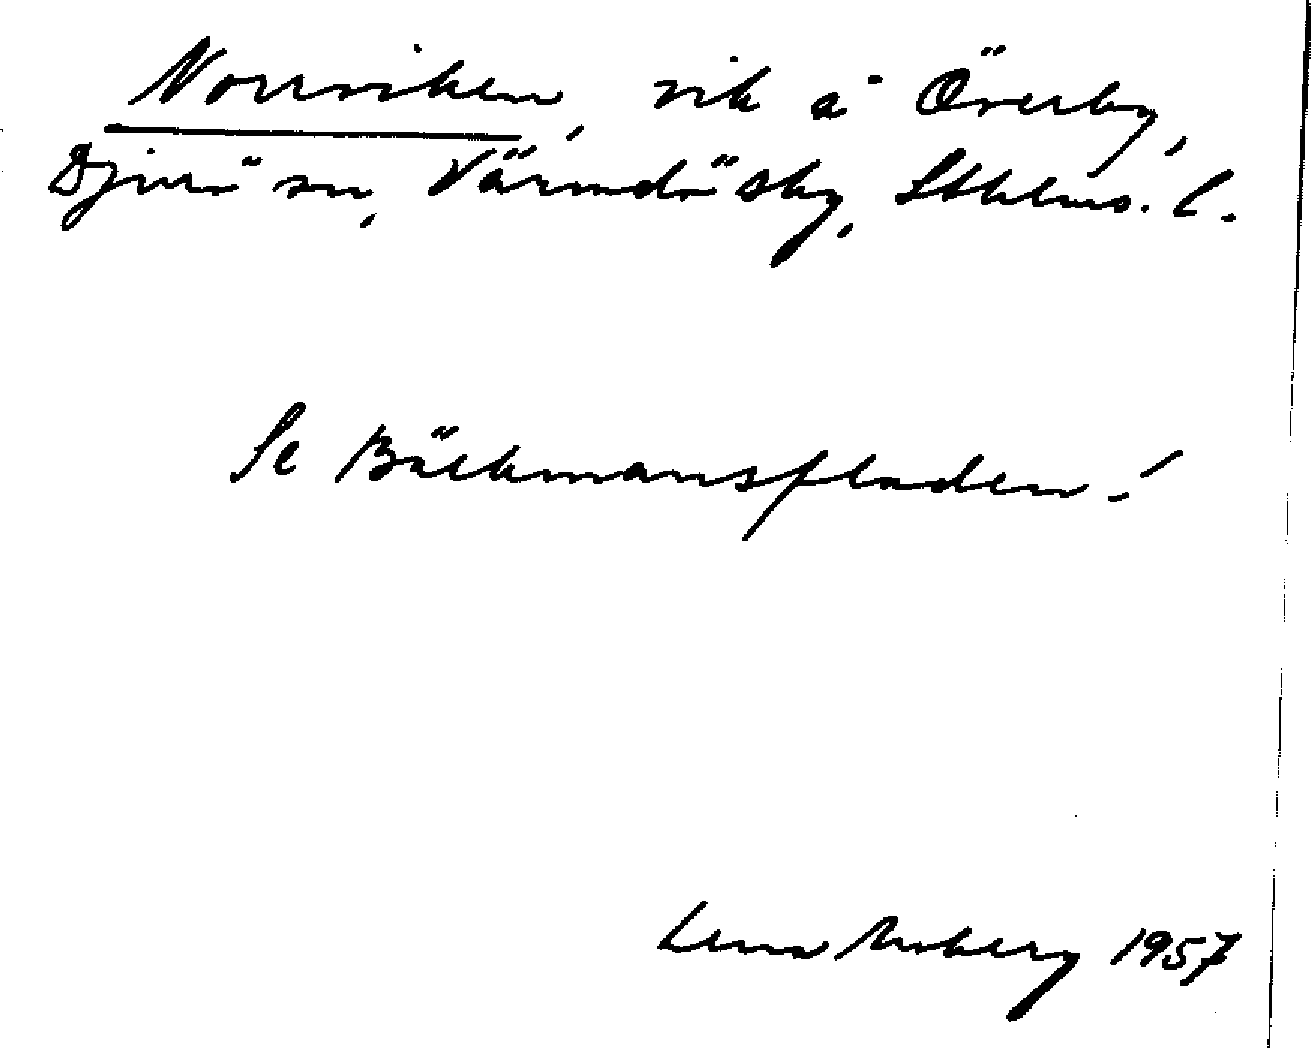 Norrviken, vik å Överby,
Djurö sn, Värmdö skg, Sthlms. l.
Se Bäckmansfladen!
Lena Moberg 1957